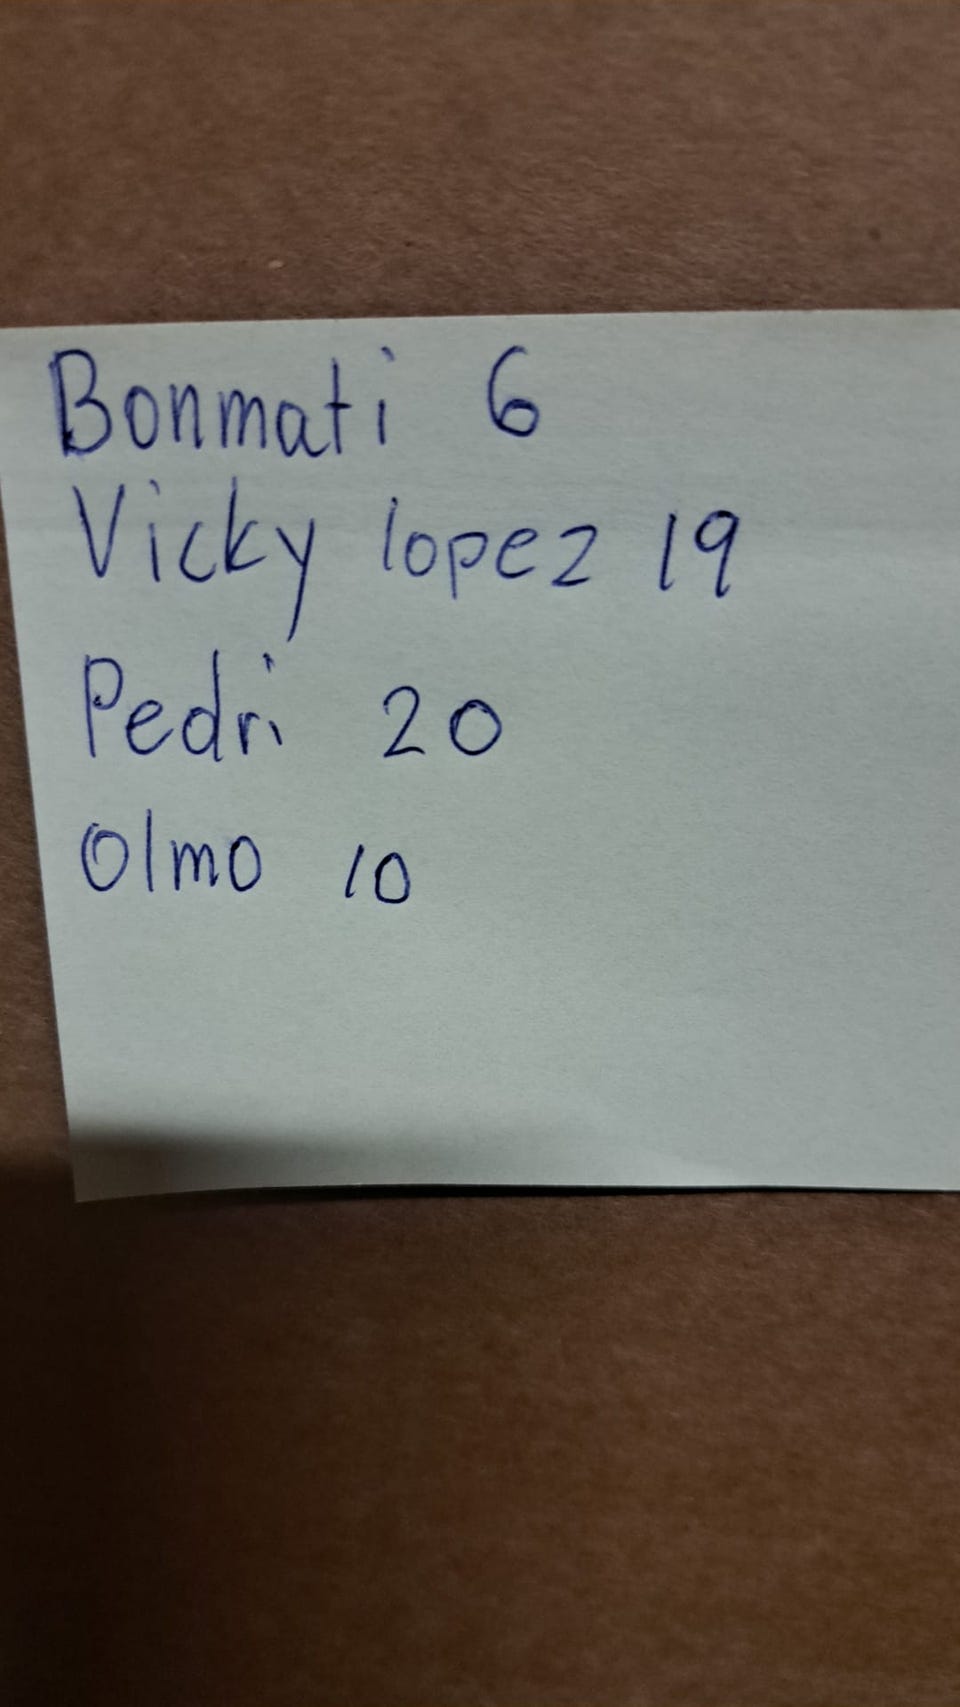 Bonmati 6
Vicky lopez 19
Pedri 20
Olmo 10